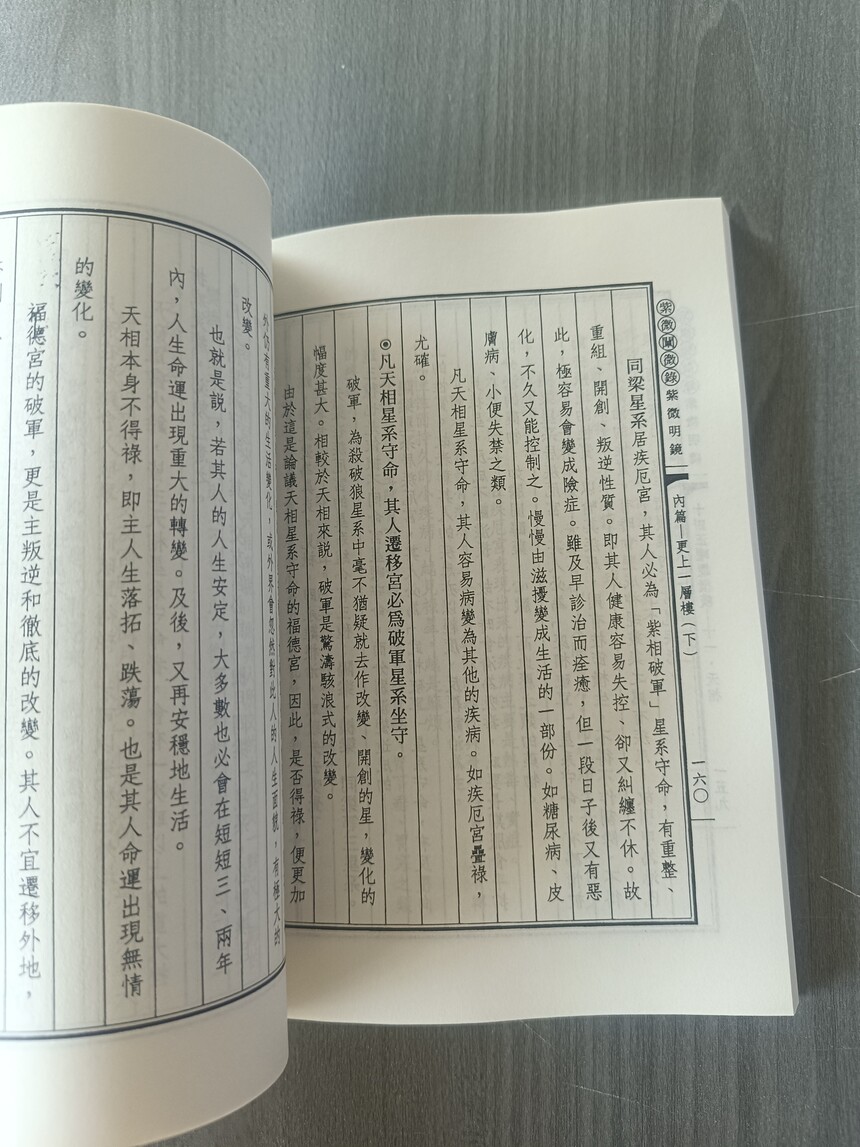 紫微闡微錄 紫微明鏡
內篇—更上一層樓(下)
一六〇
同梁星系居疾厄宮，其人必為「紫相破軍」星系守命，有重整、
重組、開創、叛逆性質。即其人健康容易失控、卻又糾纏不休。故
此，極容易會變成險症。雖及早診治而痊癒，但一段日子後又有惡
化，不久又能控制之。慢慢由滋擾變成生活的一部份。如糖尿病、皮
膚病、小便失禁之類。
凡天相星系守命，其人容易病變為其他的疾病。如疾厄宮疊祿，
尤確。
◉凡天相星系守命，其人遷移宮必爲破軍星系坐守。
破軍，為殺破狼星系中毫不猶疑就去作改變、開創的星，變化的
幅度甚大。相較於天相來說，破軍是驚濤駭浪式的改變。
由於這是論議天相星系守命的福德宮，因此，是否得祿，便更加
外仍有重大的生活變化，或外界會忽然對此人的人生面貌，有極大的
改變。
也就是說，若其人的人生安定，大多數也必會在短短三、兩年
內，人生命運出現重大的轉變。及後，又再安穩地生活。
天相本身不得祿，即主人生落拓、跌蕩。也是其人命運出現無情
的變化。
福德宮的破軍，更是主叛逆和徹底的改變。其人不宜遷移外地，